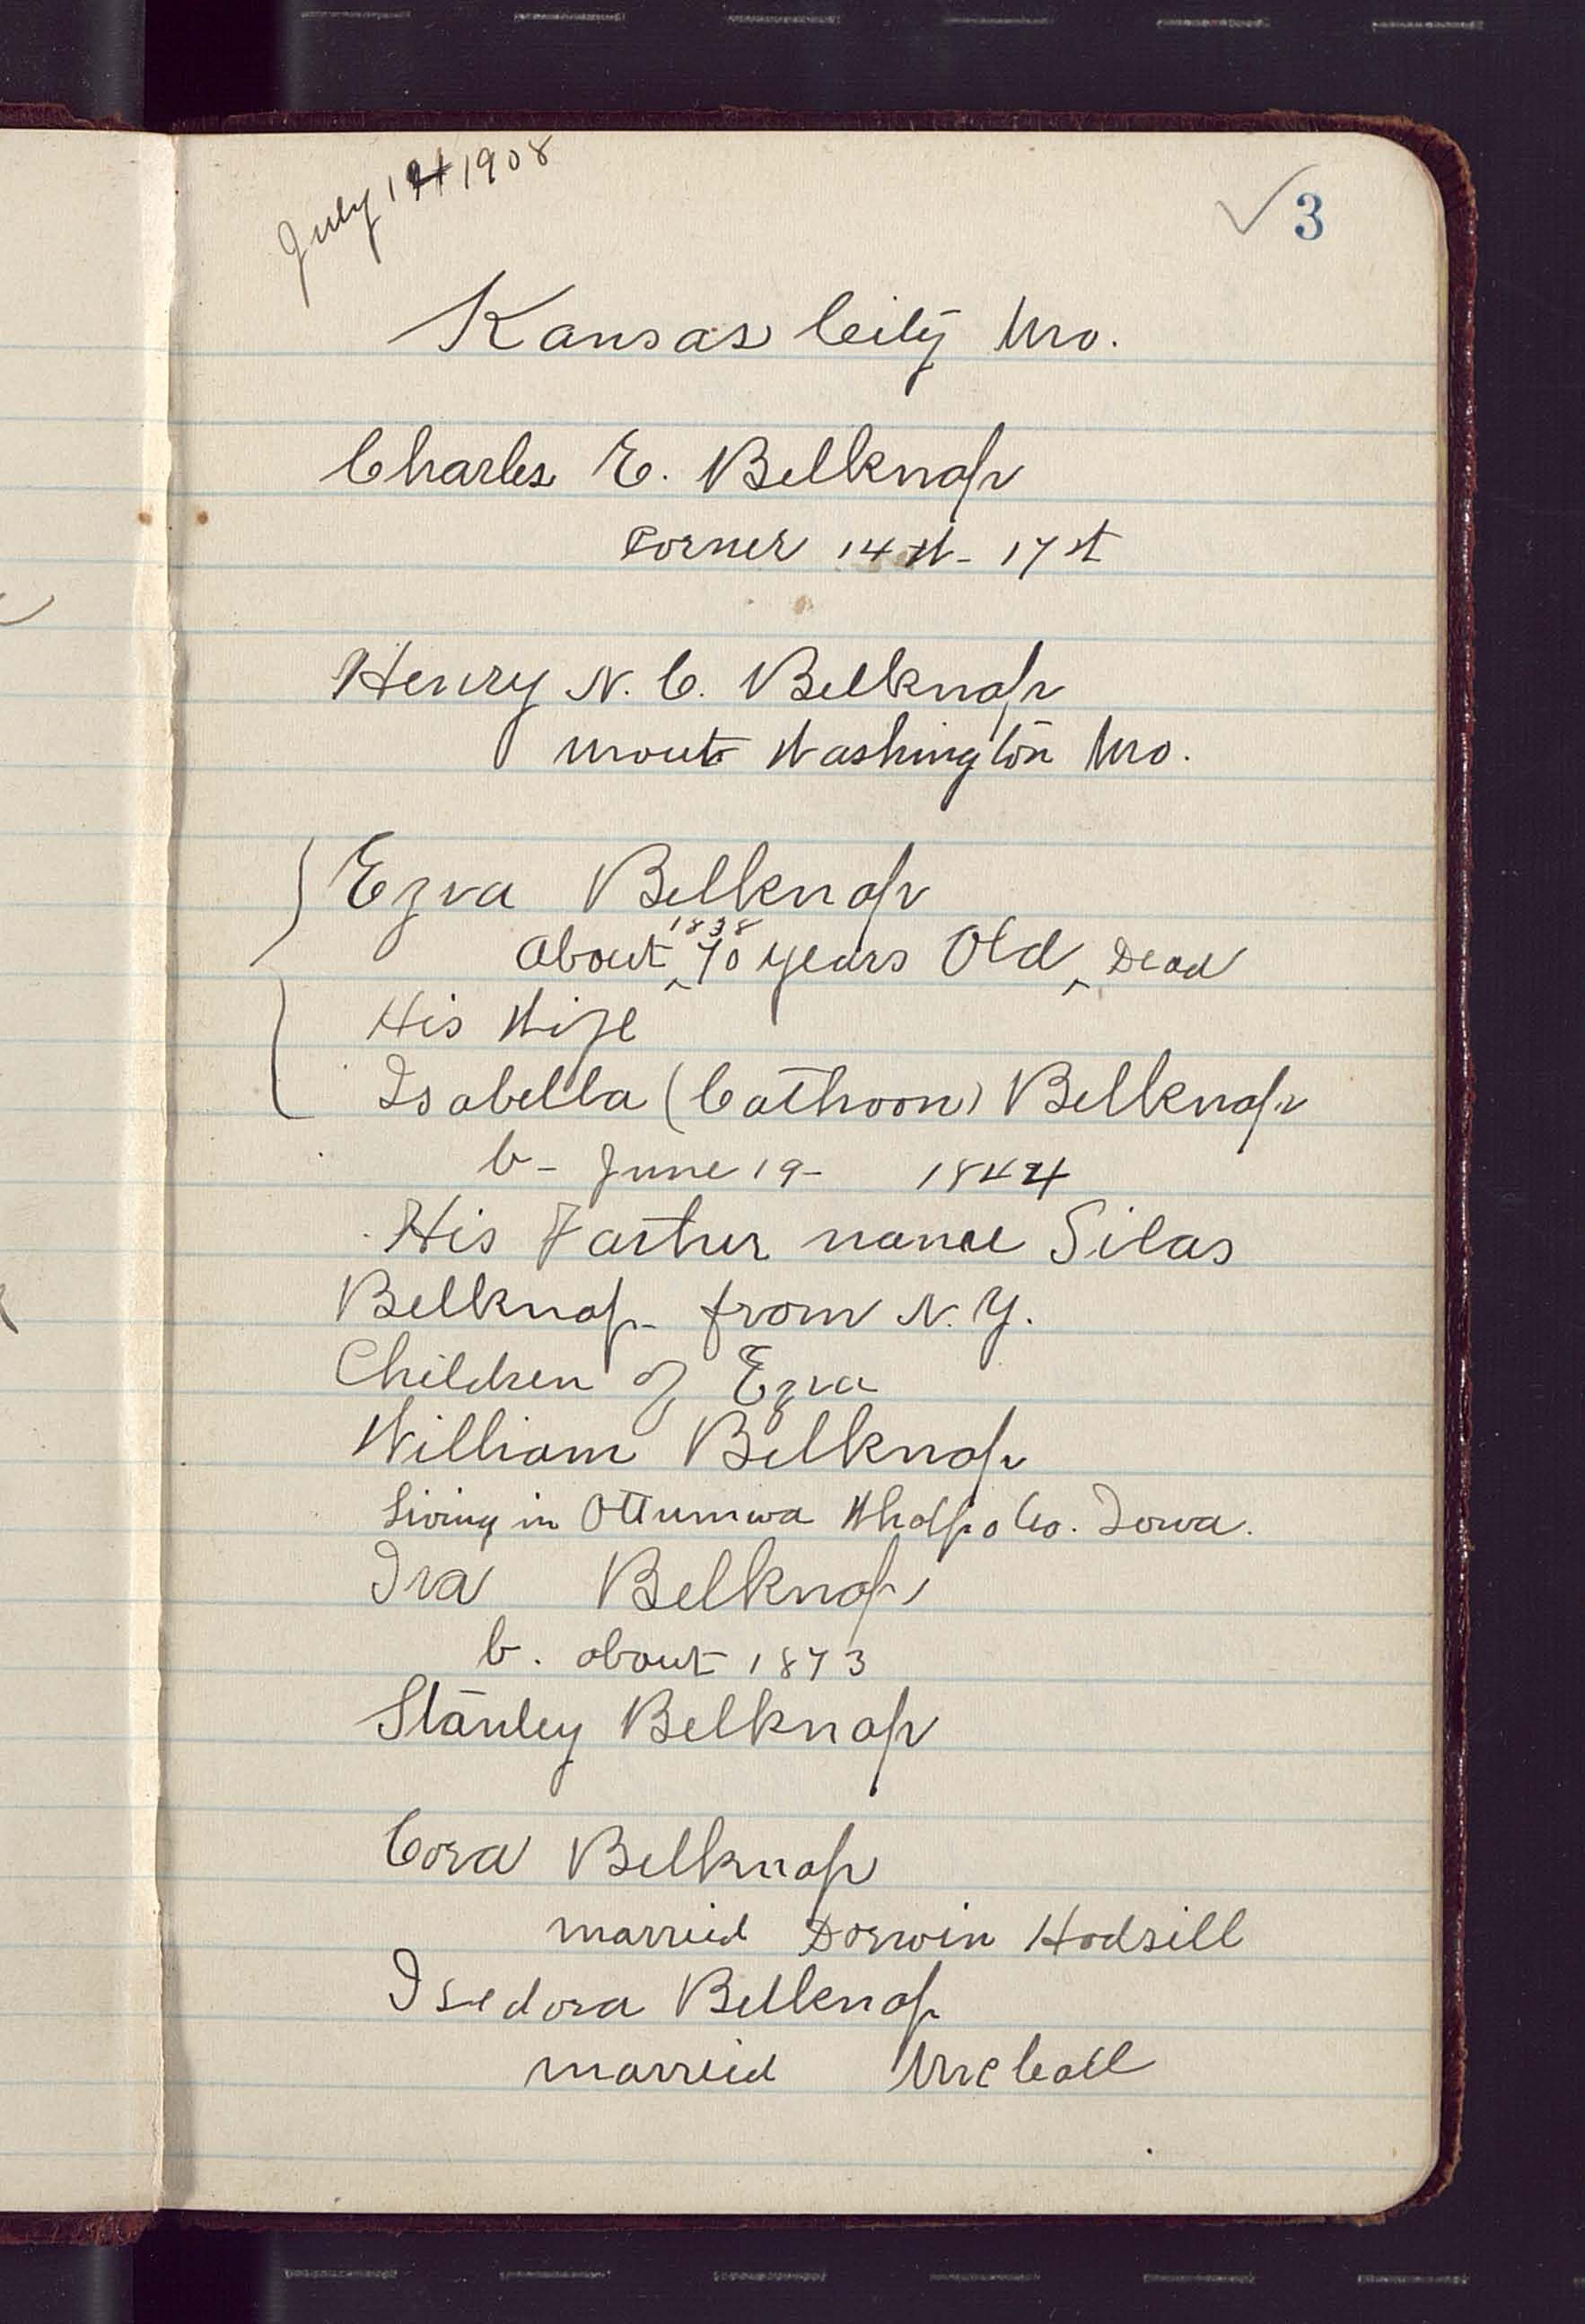 July 14 1908
3
Kansas City Mo.
Charles E. Belknap
Corner 14 st - 17 st
Henry N. C. Belknap
Mout Washington Mo.
Ezra Belknap
1838
About 70 years Old Dead
His Wife
Isabella (Cathoon) Belknap
b - June 19 - 1844
His Farther name Silas
Belknap - from N. Y.
Children of Ezra
William Belknap
Living in Ottumwa Co. Iowa.
Ira Belknap
b. about 1873
Stanley Belknap
Cora Belknap
married Dorwin Hodsill
Isedora Belknap
married McCall